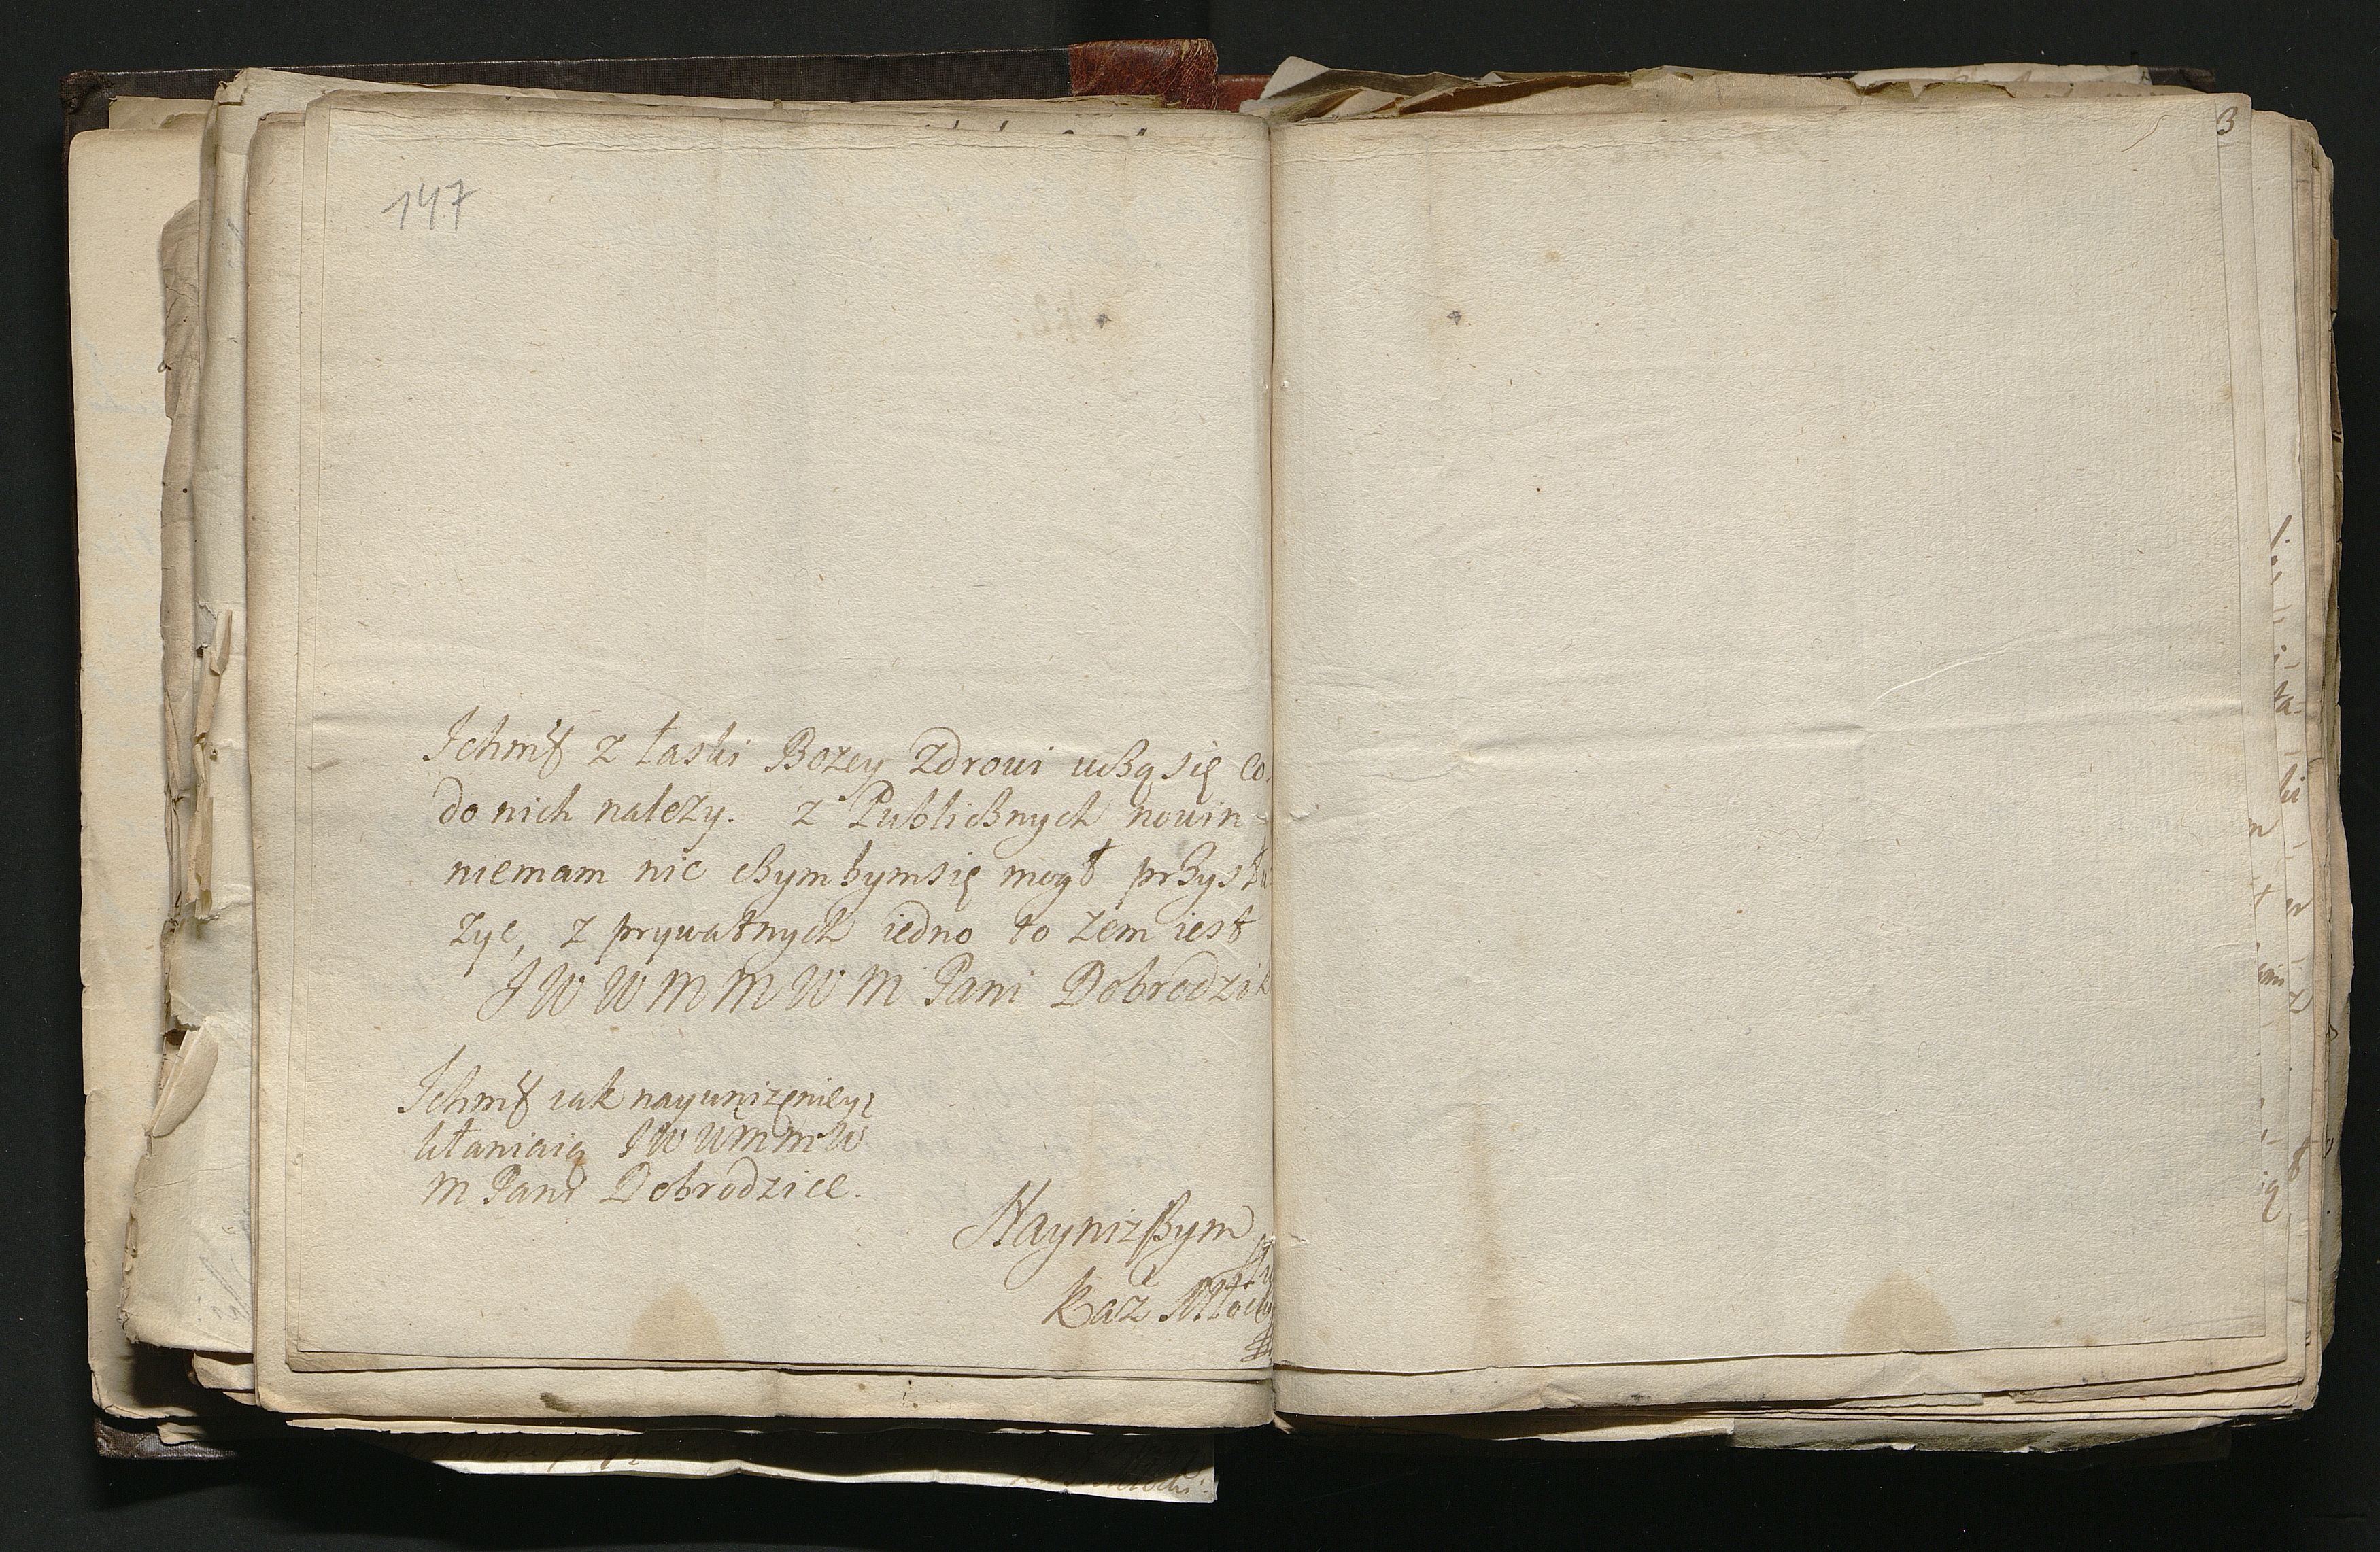 147
3
Ichmć z łaski Bozey zdrowi uczą się co
do nich nalezy. z Publicznych nowin
niemam nic czymbymsię mogł przysłu
zyc, z prywatnych iedno to zem iest
J W W M M W M Pani Dobrodzik
Ichmć iak nayunizeniey
kłaniaią J W W M M W
M Pani Dobrodzice.
Nayniszym
Kaz Młock